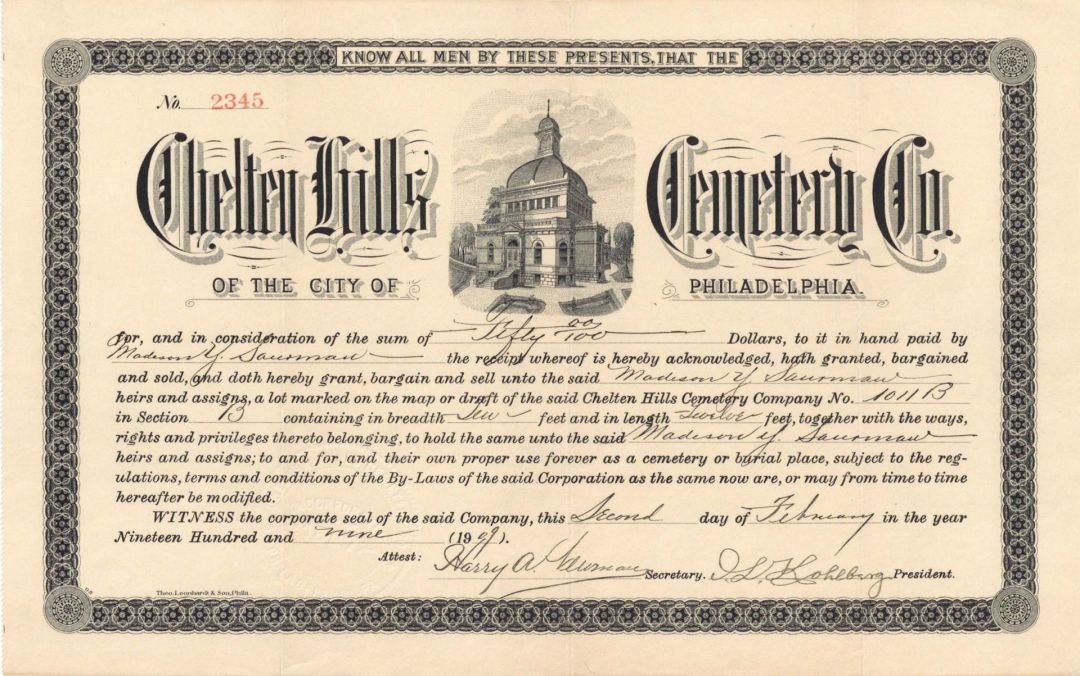 KNOW ALL MEN BY THESE PRESENTS, THAT THE
No. 2345
Chelten Hills Cemetery Co.
OF THE CITY OF PHILADELPHIA.
for, and in consideration of the sum of Fifty 00/100 Dollars, to it in hand paid by
Madison Y. Saurman the receipt whereof is hereby acknowledged, hath granted, bargained
and sold, and doth hereby grant, bargain and sell unto the said Madison Y. Saurman
heirs and assigns, a lot marked on the map or draft of the said Chelten Hills Cemetery Company No. 1011 B
in Section B containing in breadth Ten feet and in length Twelve feet, together with the ways,
rights and privileges thereto belonging, to hold the same unto the said Madison Y. Saurman
heirs and assigns; to and for, and their own proper use forever as a cemetery or burial place, subject to the reg-
ulations, terms and conditions of the By-Laws of the said Corporation as the same now are, or may from time to time
hereafter be modified.
WITNESS the corporate seal of the said Company, this Second day of February in the year
Nineteen Hundred and nine (1909).
Attest: Harry A. Secretary. President.
Theo. Leonhardt & Son, Phila.